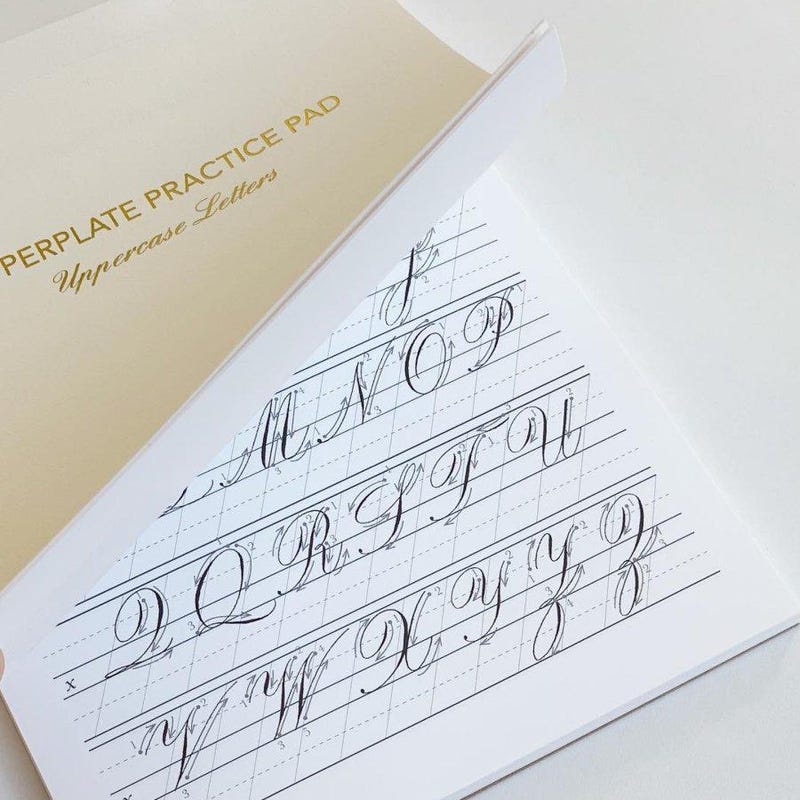 PERPLATE PRACTICE PAD
Uppercase Letters
M N O P
Q Q R S T U
x
V W X Y Y Z